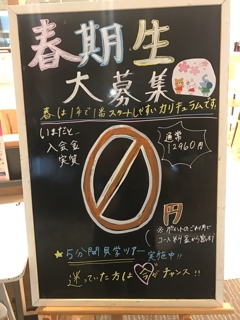 春期生
大募集
春は1年で1番スタートしやすいカリキュラムです
いまだと
入会金
実質
通常
12960円
0
円
※ポイントのご利用で
コース料金から割引
★5分間見学ツアー実施中!!
迷っていた方は今がチャンス!!